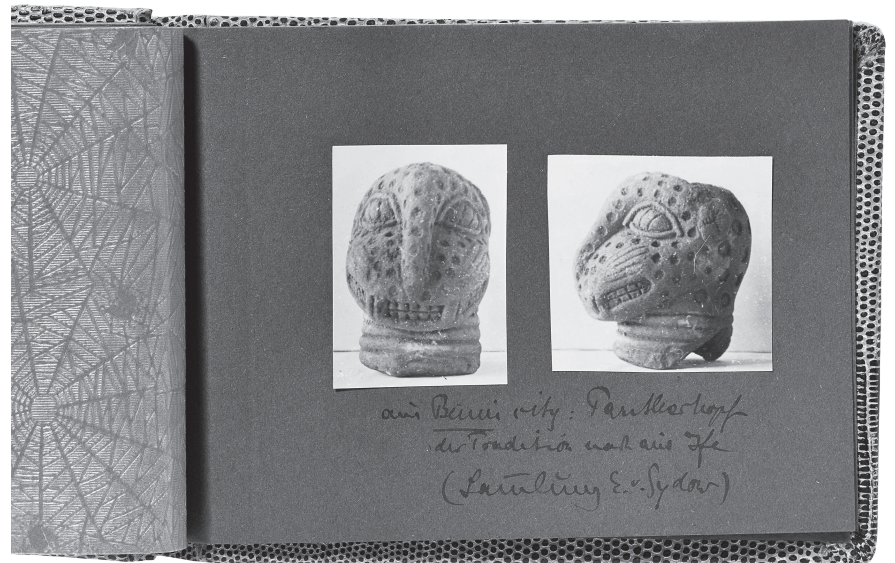 aus Benin city: Pantherkopf
der Tradition nach aus Ife
(Sammlung E. v. Sydow)